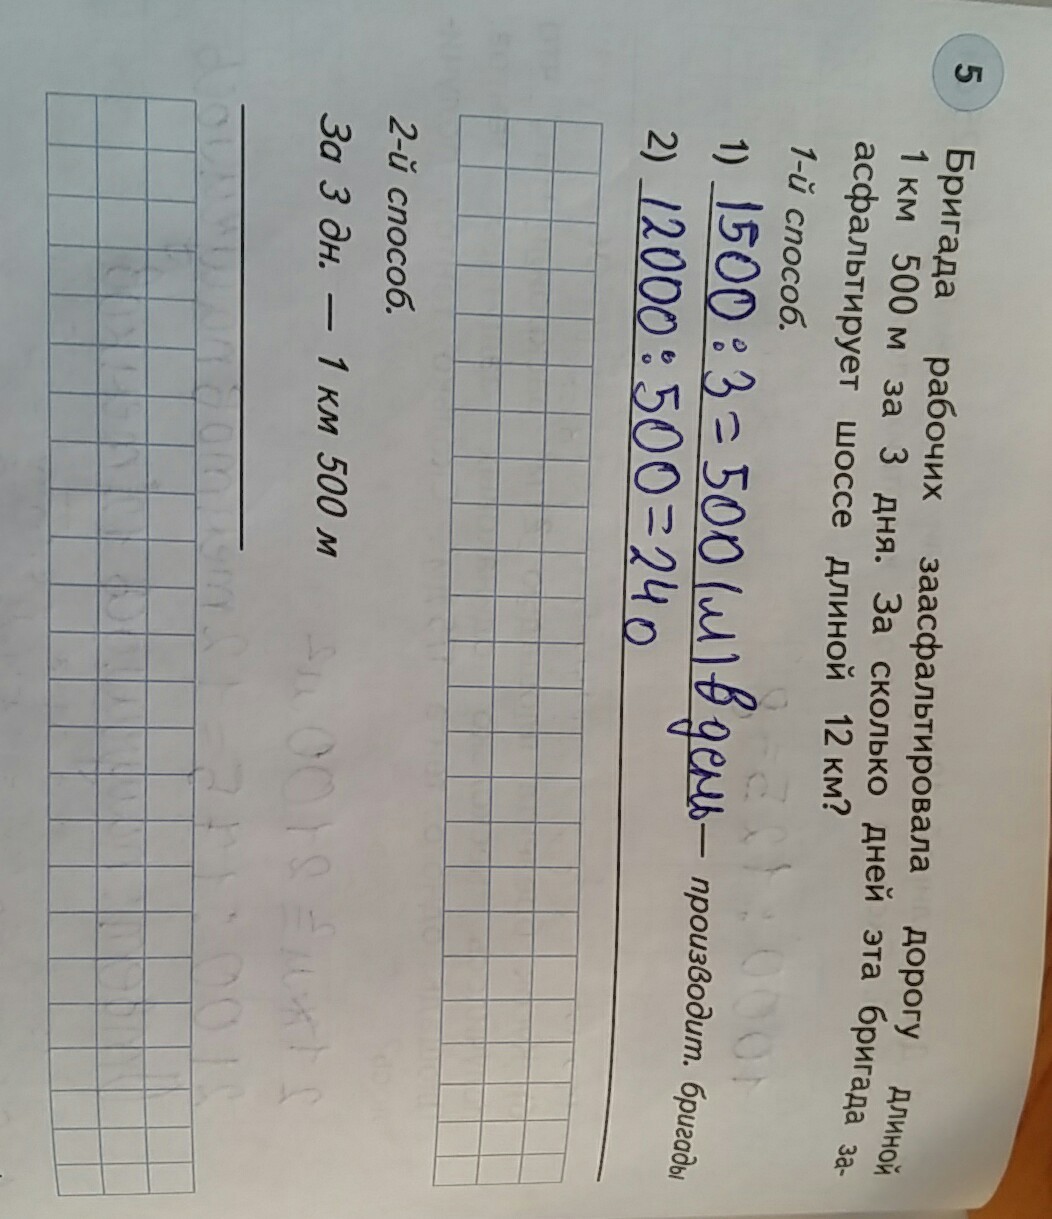 5
Бригада рабочих заасфальтировала дорогу длиной
1 км 500 м за 3 дня. За сколько дней эта бригада за-
асфальтирует шоссе длиной 12 км?
1-й способ.
1) 1500 : 3 = 500 (м) в день — производит. бригады
2) 12000 : 500 = 240
2-й способ.
За 3 дн. — 1 км 500 м